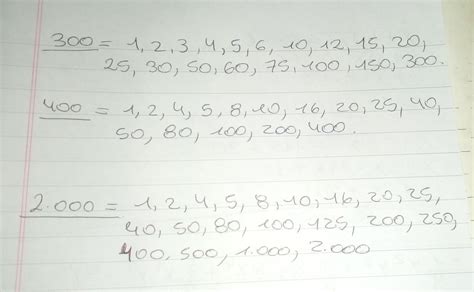 300 = 1, 2, 3, 4, 5, 6, 10, 12, 15, 20,
25, 30, 50, 60, 75, 100, 150, 300.
400 = 1, 2, 4, 5, 8, 10, 16, 20, 25, 40,
50, 80, 100, 200, 400.
2.000 = 1, 2, 4, 5, 8, 10, 16, 20, 25,
40, 50, 80, 100, 125, 200, 250,
400, 500, 1.000, 2.000